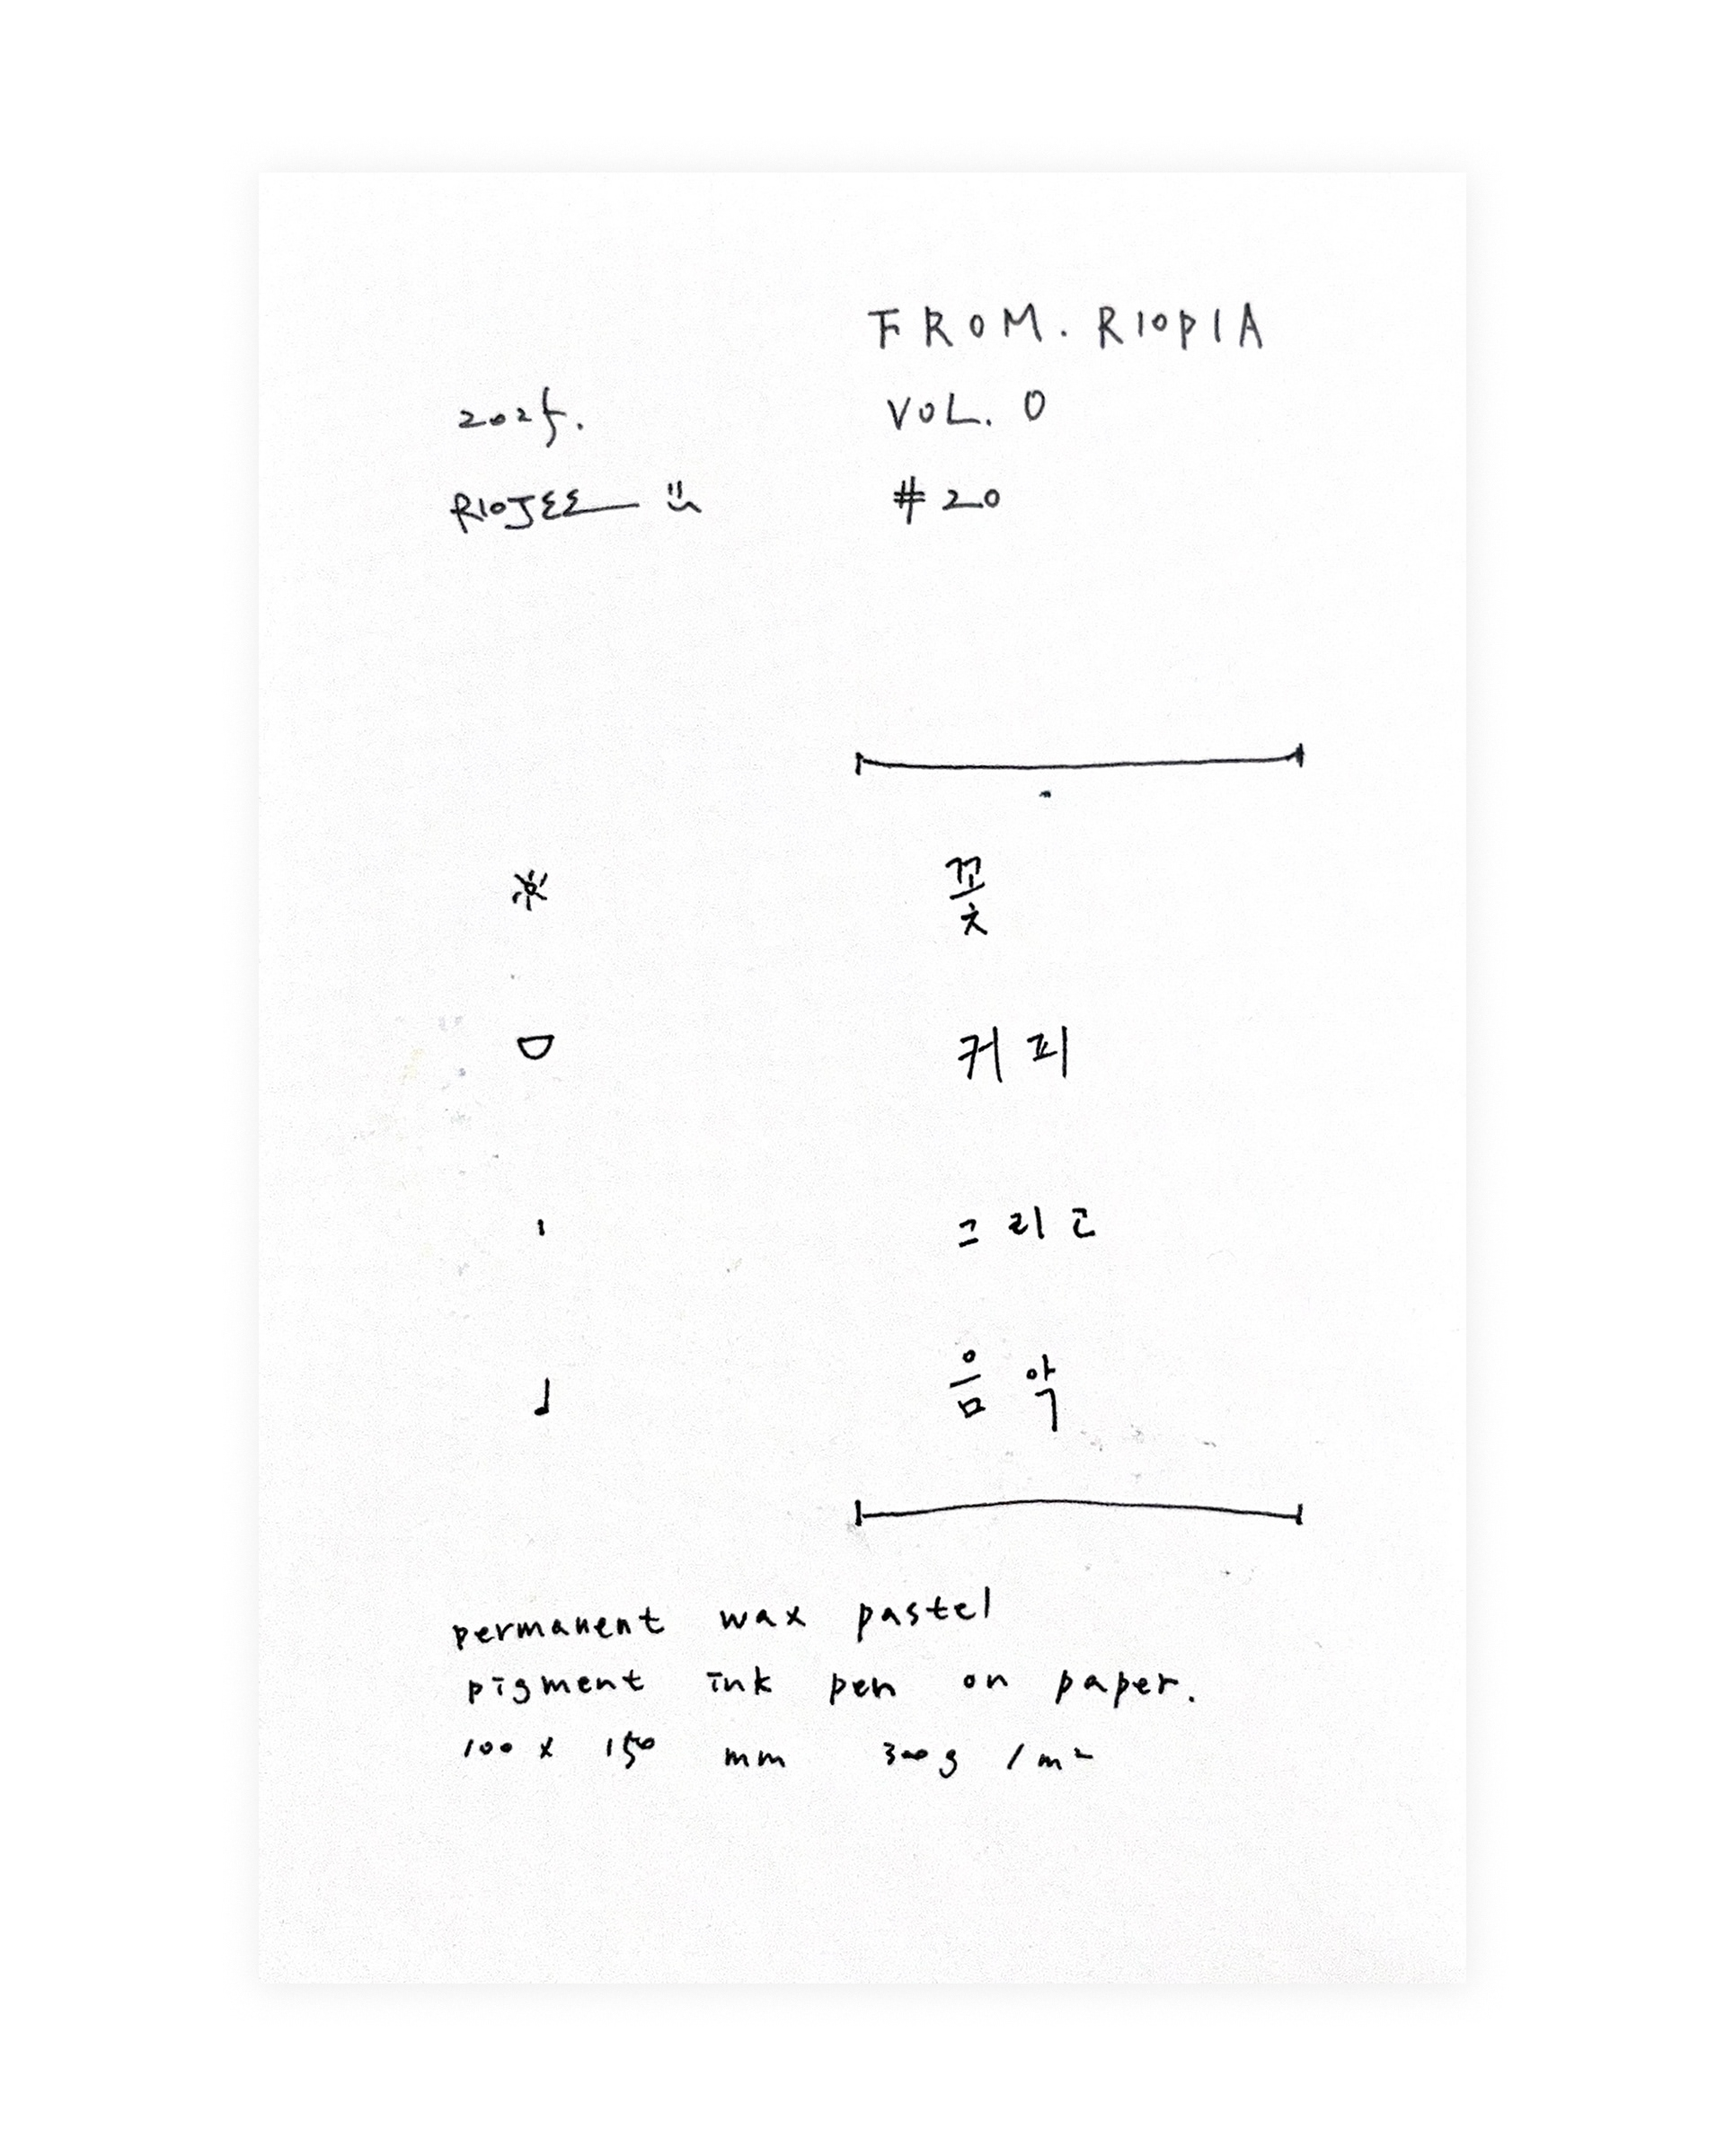 FROM. RIOPIA
2025. VOL. 0
RIOJEE #20
꽃
커피
그리고
음악
permanent wax pastel
pigment ink pen on paper.
100 x 150 mm 300g /m²